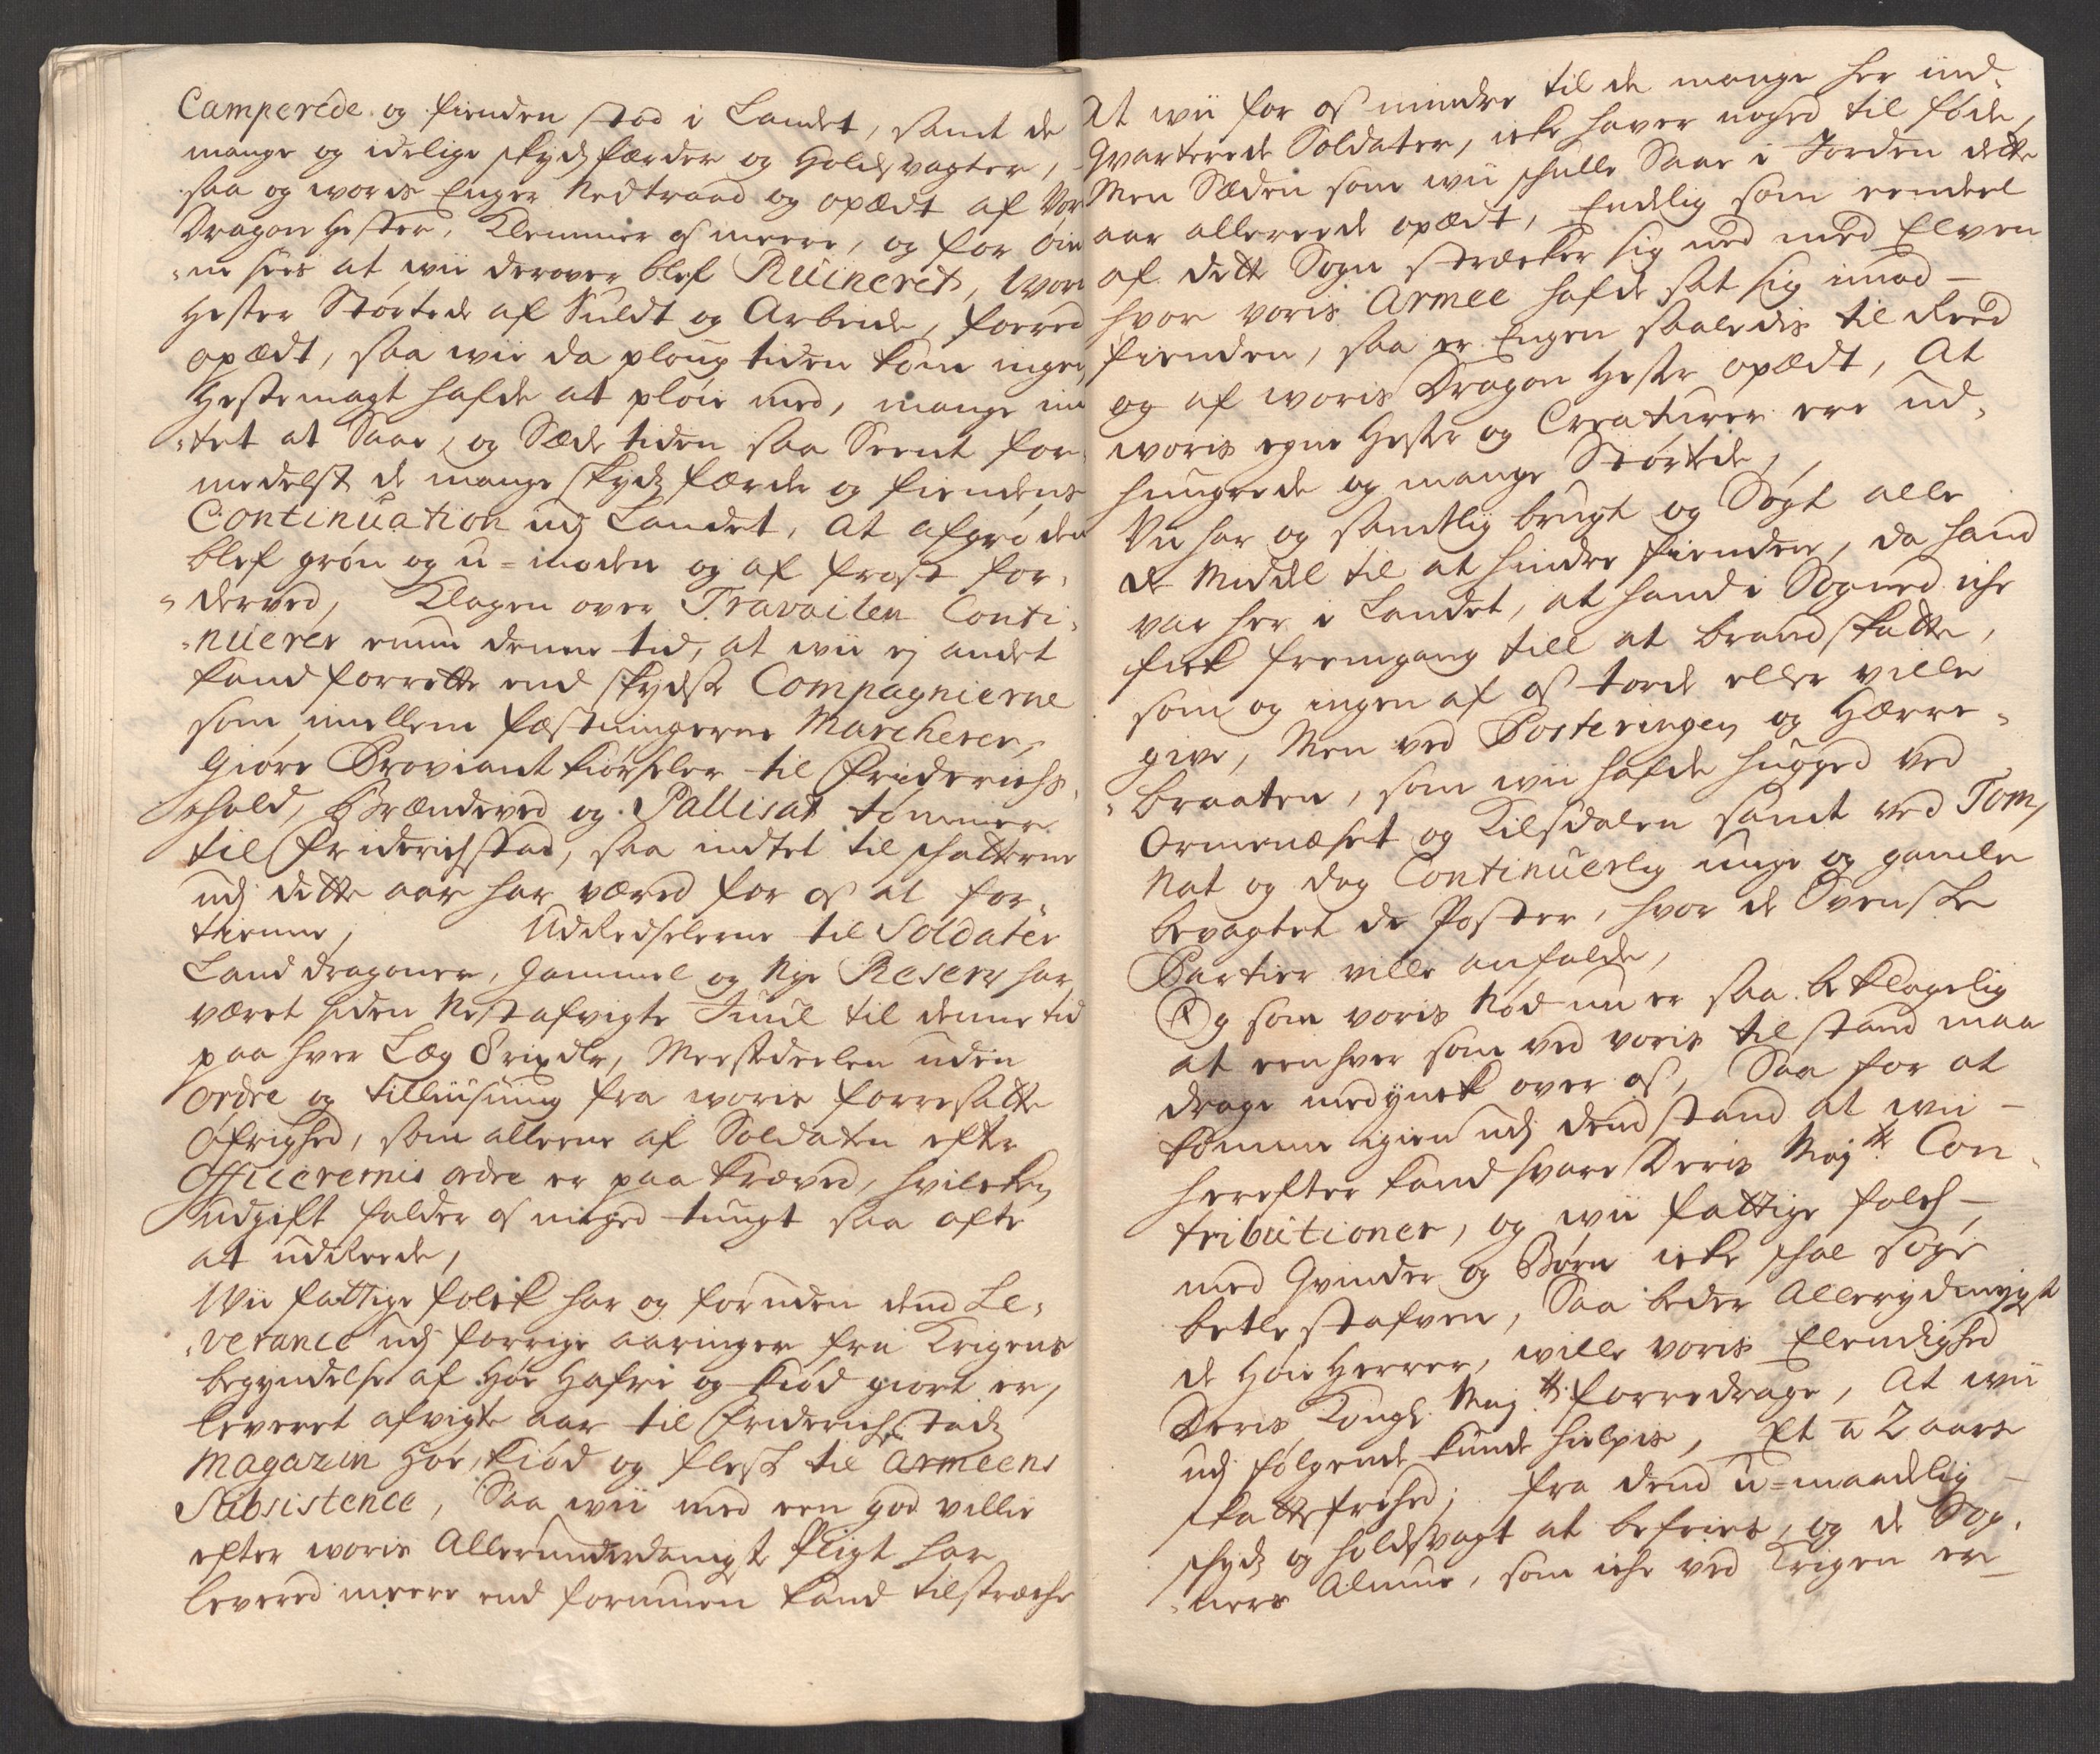 Camperede og fienden stod i Landet, samt de
mange og idelige skydsfærder og Holdsvagter,
saa og woris Enger Nedtraad og opædt af Vor
Dragon Hester, Klemmer os meere, og for øin
-ne sees at wii derover blef Ruineret, Wore
Hester Størtede af Suldt og Arbeide, foeret
opædt, saa wii da ploug tiden kom ingen
Hestemagt hafde at pløie med, mange in
-tet at Saae, og Sæde tiden saa Seent for-
medelst de mange skyds færder og fiendens
Continuation udj Landet, at afgrøden
blef grøn og u-moden og af frost for-
-derved, Klagen over Travailen Conti-
-nuerer ennu denne tid, at wii ej andet
kand forrette end skydse Compagnierne
som imellem fæstningerne Marcherer,
Giøre Proviant kiørseler til Friderichs-
hald, Brændeved og Pallisat tømmer
til Friderichstad, saa indtet til skatterne
udj dette aar har været for os at for-
tienne, Udredselerne til Soldater
Land dragoner, Gammel og Nye Reserv har
været siden Nestafvigte Juul til denne tid
paa hver Læg 8 rixdlr, Meestedeelen uden
ordre og tilliusning fra woris forresatte
Øfrighed, som alleene af Soldaten efter
Officerernis ordre er paa kræved, hvilken
udgift falder os meged tungt saa ofte
at udreede,
Wii fattige folck har og foruden dend Le-
-verance udj forrige aaringer fra Krigens
begyndelse af Høe Hafre og kiød giort er,
leveret afvigte aar til Friderichstads
Magazin Høe, kiød og flesk til Armeens
Subsistence, Saa wii med een god villie
efter woris Allerunderdanigste Pligt har
levered meere end formuen kand tilstræcke
At wii for os mindre til de mange her ind-
Qvarterede Soldater, icke haver noged til føde,
Men Sæden som wii skulle Saae i Jorden dette
aar allereede opædt, Endelig som eendeel
af dette Sogn strecker sig ned med Elven
hvor voris Armee hafde sat sig imod
fienden, saa er Engen saaledis til Reed
og af woris Dragon Hester opædt, At
woris egne Hester og Creaturer ere ud-
hungrede og mange Størtede,
Vii har og samtlig brugt og Søgt alle
de Middel til at hindre fienden, da hand
var her i Landet, at hand i Sogned iche
fick fremgang till at brandskatte,
som og ingen af os torde eller ville
give, Men ved Posteringen og Hærre-
-braaten, som wii hafde hugged ved
Ormenæset og Kilsdalen samt ved Tom,
Nat og dag Continuerlig unge og gamle
bevagtet de Poster, hvor de Svenske
Partier ville anfalde,
Og som voris Nød nu er saa beklagelig
at een hver som ved voris tilstand maa
drage medynck over os, Saa for at
komme igien udj dend stand at wii
herefter kand svare Deris Maj:ts Con-
tributioner, og wii fattige folch
med Qvinder og Børn icke skal søge
betlestafven, Saa beder Allerydmygst
de Høie Herrer, wille voris Elendighed
Deris Kongl: Maj:tt: forredrage, At wii
udj følgende kunde hielpis, Et a 2 aars
skattefrihed, fra dend u-maadelig
skyds og holdsvagt at befries, og de Sog-
-ners Almue, som iche ved Krigen er